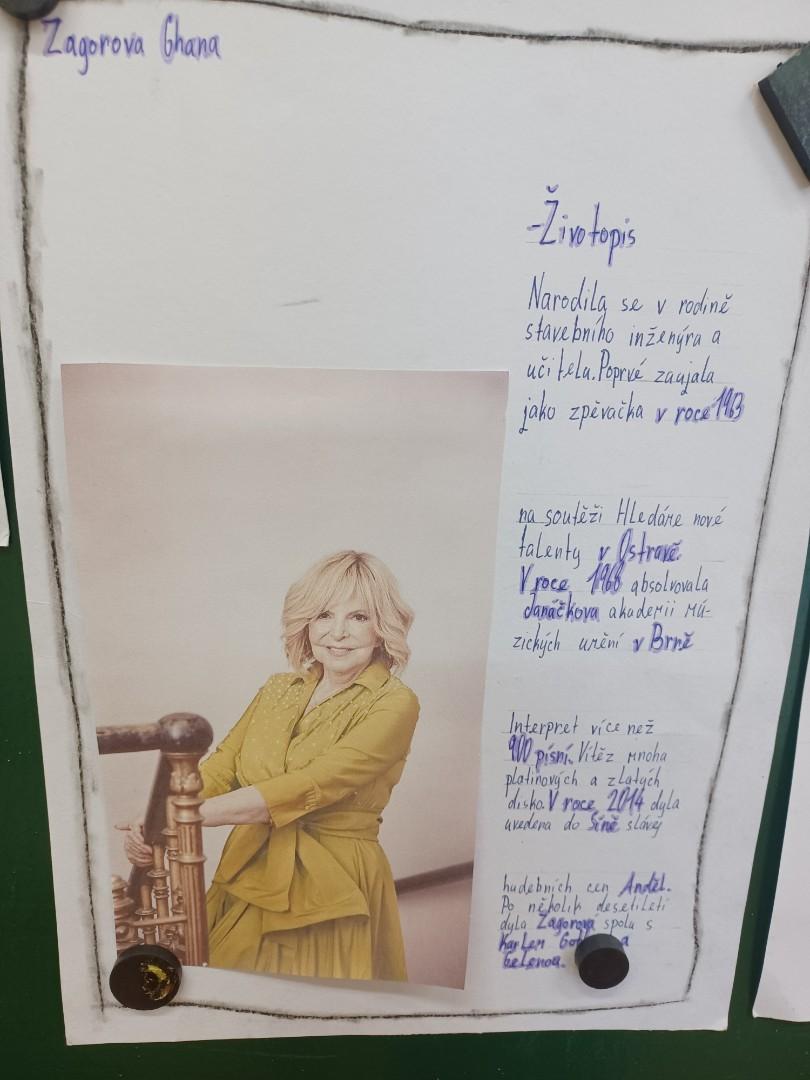 Zagorova Ghana
-Životopis
Narodila se v rodině
stavebního inženýra a
učitela. Poprvé zaujala
jako zpěvačka v roce 1963
na soutěži Hledáme nové
talenty v Ostravě.
V roce 1968 absolvovala
Janáčkova akademii mú-
zických umění v Brně
Interpret více než
900 písní. Vítěz mnoha
platinových a zlatých
disko. V roce 2014 dyla
uvedena do Síně slávej
hudebních cen Anděl.
Po několik desetileti
dyla Zagorová spolu s
a